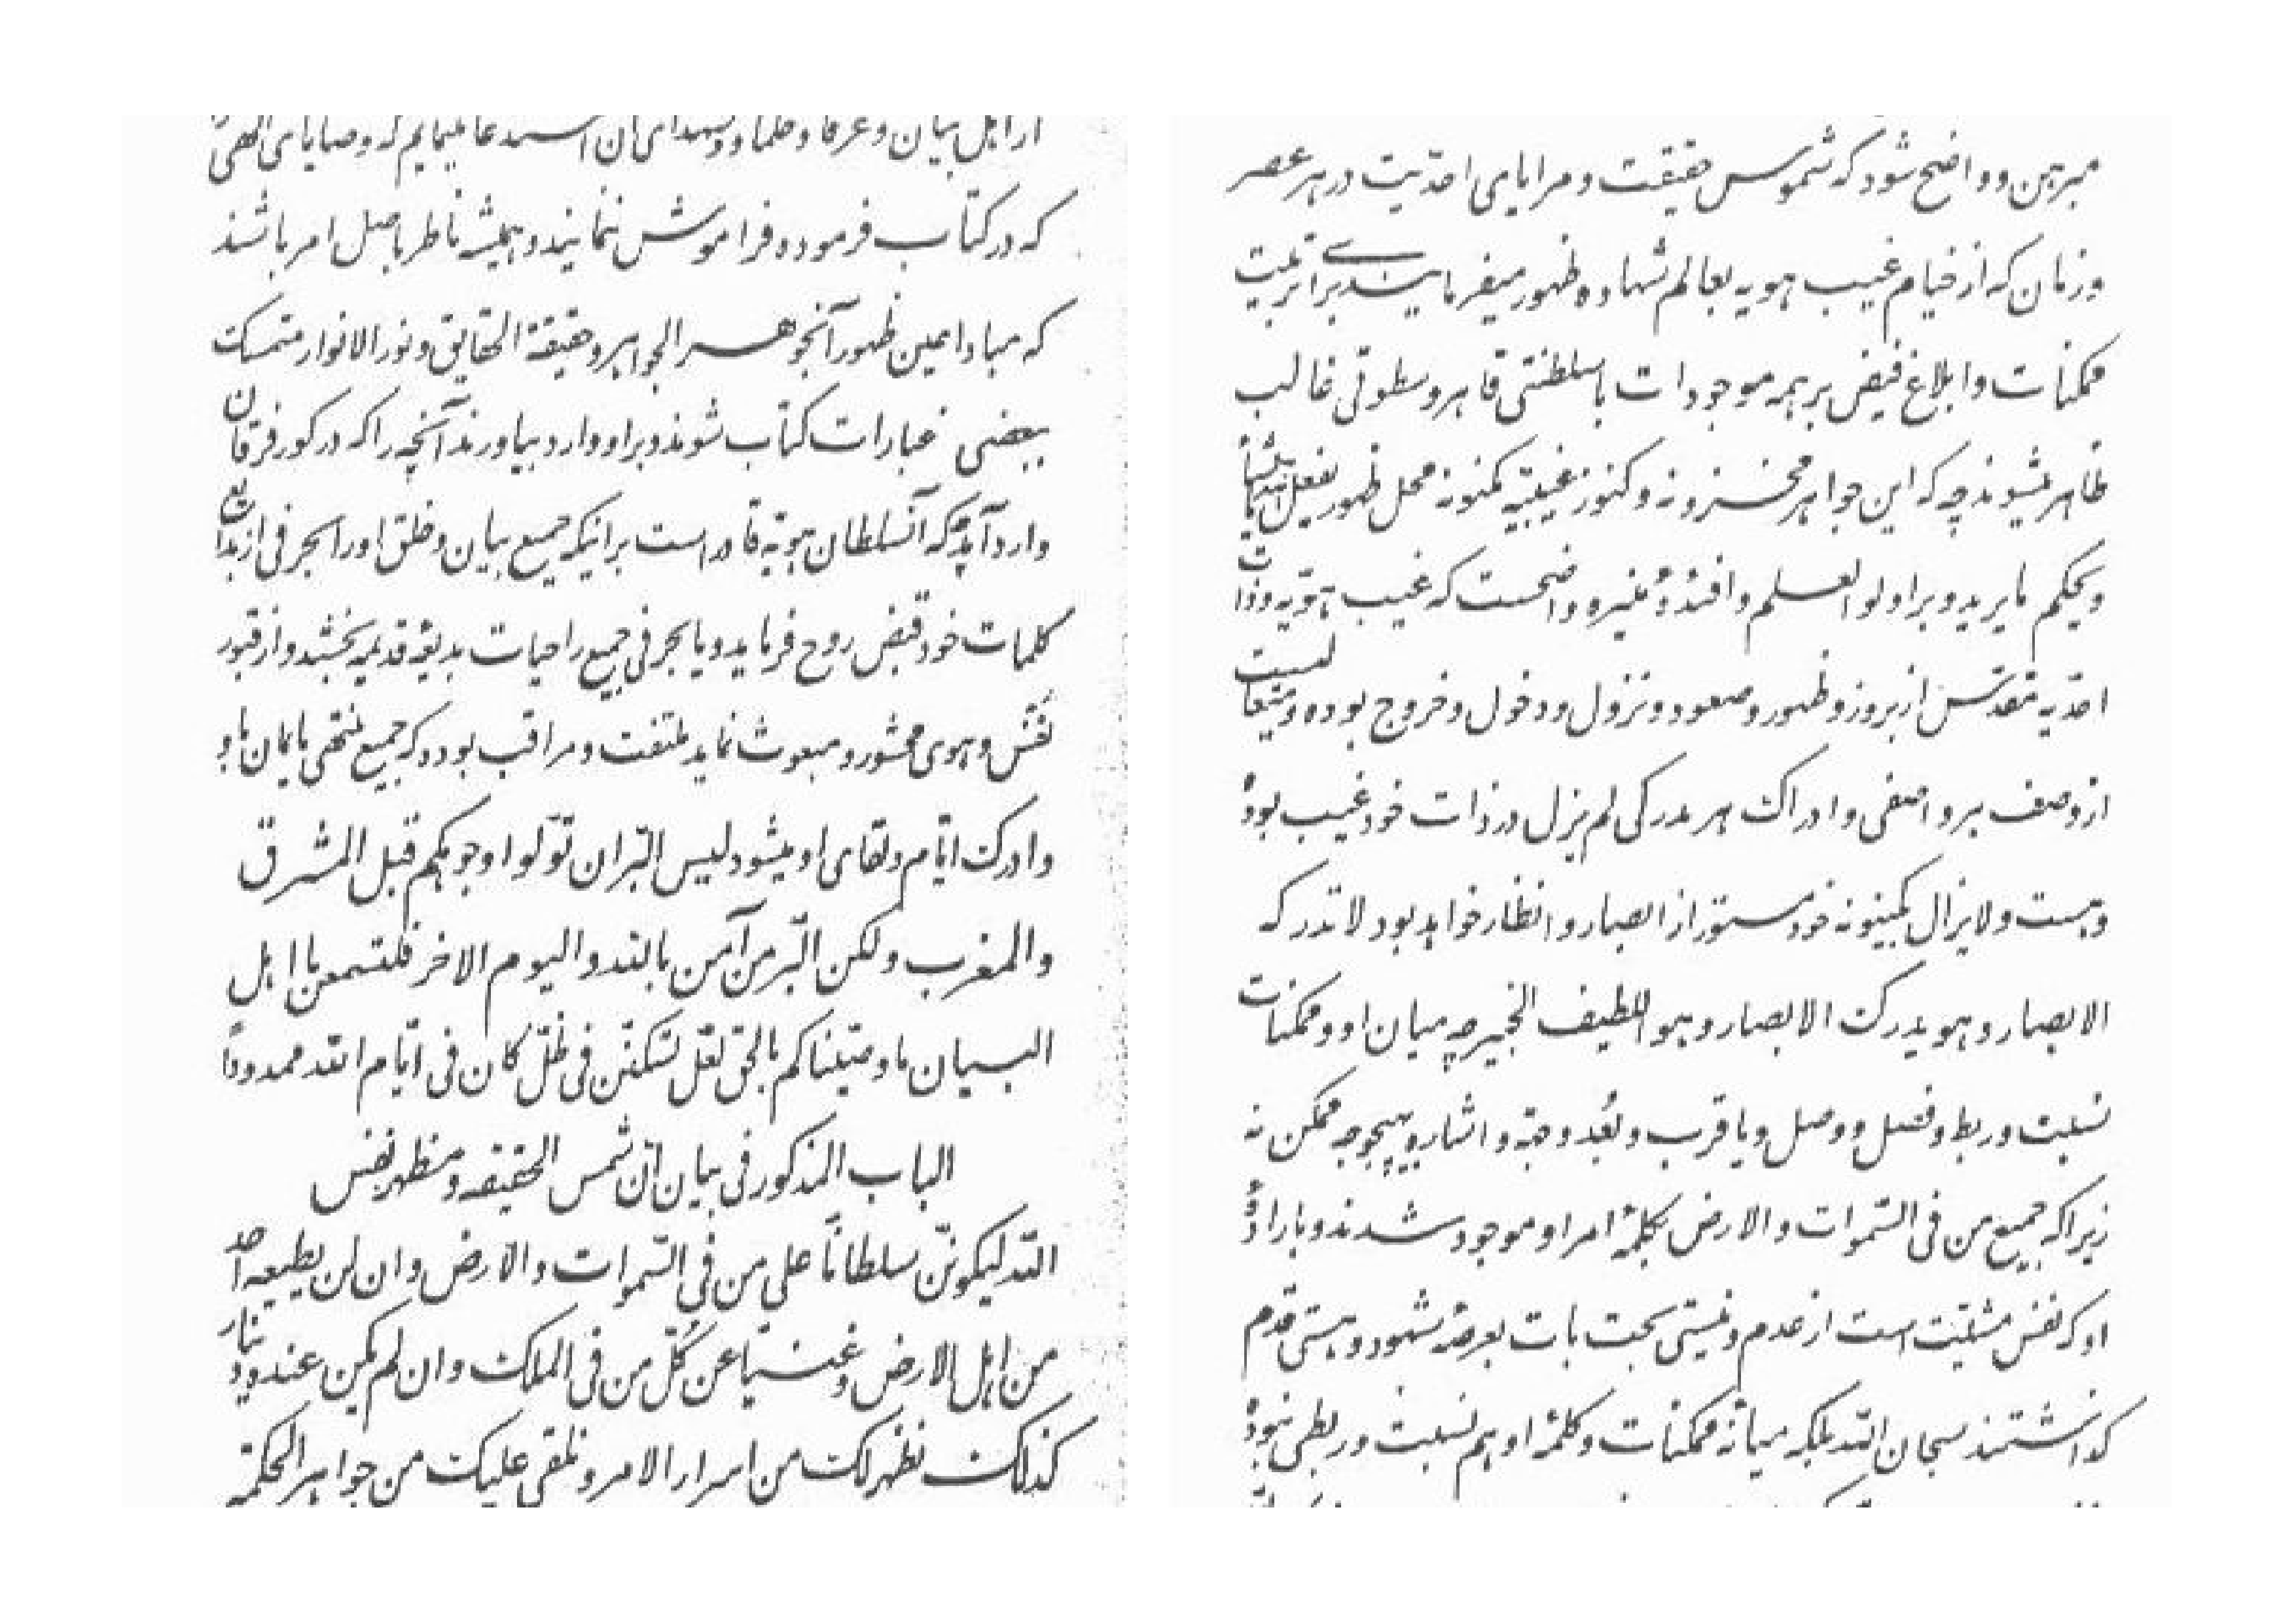 از اهل بیان و عرفا و حکما و شهدای آن استدعا مینمایم که وصایای الهی را
که در کتاب فرموده فراموش ننمایند و همیشه ناظر باصل امر باشند
که مبادا حین ظهور آنجوهر الجواهر و حقیقة الحقایق و نور الانوار متمسک
ببعضی عبارات کتاب شوند و بر او وارد بیاورند آنچه را که در کور فرقان
وارد آمد چه که آنسلطان هویّه قادر است بر اینکه جمیع بیان و خلق او را بحرفی از بدایع
کلمات خود قبض روح فرماید و یا بحرفی جمیع را حیات بدیعهٔ قدیمه بخشد و از قبور
نفس و هوی محشور و مبعوث نماید ملتفت و مراقب بوده که جمیع منتهی بایمان باو
و ادرک ایّام و لقای او میشود لیس البّر ان تولّوا وجوهکم قبل المشرق
و المغرب ولکن البّر من آمن بالله و الیوم الاخر فلتسمعن یا اهل
البیان ما وصّیناکم بالحق لعل تسکنّن فی ظلّ کان فی ایّام الله ممدوداً
الباب المذکور فی بیان انّ شمس الحقیقه و مظهر نفس
الله لیکوننّ سلطاناً علی من فی السّموات و الارض و ان لن یطیعه احد
من اهل الارض و غنیّا عن کلّ من فی الملک و ان لم یکن عنده دینار
کذلک نظهر لک من اسرار الامر و نلقی علیک من جواهر الحکمة
مبرهن و واضح شود که شموس حقیقت و مرایای احدّیت در هر عصر
و زمان که از خیام غیب هویه بعالم شهاده ظهور میفرمایند برای تربیت
ممکنات و ابلاغ فیض بر همه موجودات با سلطنتی قاهر و سطوتی غالب
ظاهر میشوند چه که این جواهر مخزونه و کنوز غیبیّه مکنونه محل ظهور یفعل الله ما یشأ
و یحکم ما یرید و بر اولو العلم و افئدهٔ منیره واضحست که غیب هویّه و ذات
احدّیه مقدّس از بروز و ظهور و صعود و نزول و دخول و خروج بوده و متعالیست
از وصف هر واصفی و ادراک هر مدرکی لم یزل در ذات خود غیب بوده
و هست و لا یزال بکینونه خود مستور از ابصار و انظار خواهد بود لا تدرکه
الابصار و هو یدرک الابصار و هو اللطیف الخبیر چه میان او و ممکنات
نسبت و ربط و فصل و وصل و یا قرب و بُعد و جهة و اشاره بهیچوجه ممکن نه
زیرا که جمیع من فی السّموات و الارض بکلمهٔ امر او موجود شدند و بارادهٔ
او که نفس مشیّت است از عدم و نیستی بحت بات بعرصهٔ شهود و هستی قدم
گذاشتند سبحان الله بلکه میانهٔ ممکنات و کلمهٔ او هم نسبت و ربطی نبوده